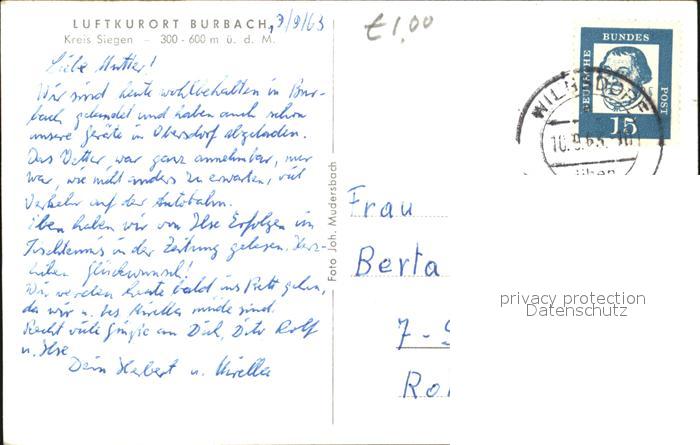 LUFTKURORT BURBACH, 9/9/63
Kreis Siegen – 300 - 600 m ü. d. M.
£1,00
Liebe Mutter!
Wir sind heute wohlbehalten in Bur-
bach gelandet und haben auch schon
unsere Geräte in Obersdorf abgeladen.
Das Wetter war ganz annehmbar, nur
war, wie nicht anders zu erwarten, viel
Verkehr auf der Autobahn.
Eben haben wir von Ilse Erfolgen im
Tischtennis in der Zeitung gelesen. Herz-
lichen Glückwunsch!
Wir werden heute bald ins Bett gehen,
da wir u. bes. Mirella müde sind.
Recht viele Grüße an Dich, Rolf
u. Ilse
Dein Herbert u. Mirella
Foto Joh. Mudersbach
DEUTSCHE BUNDES POST
15
WILNSDORF
10.9.63.
Frau
Berta
7-
Ro
privacy protection
Datenschutz